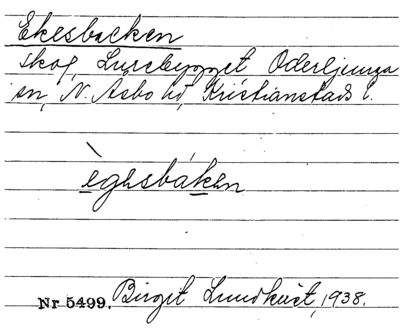 Ekesbacken
skog, Lurebygget Oderljunga
sn, N. Åsbo hd, Kristianstads l.
ègesbáken
Nr 5499. Birgit Lundkvist, 1938.